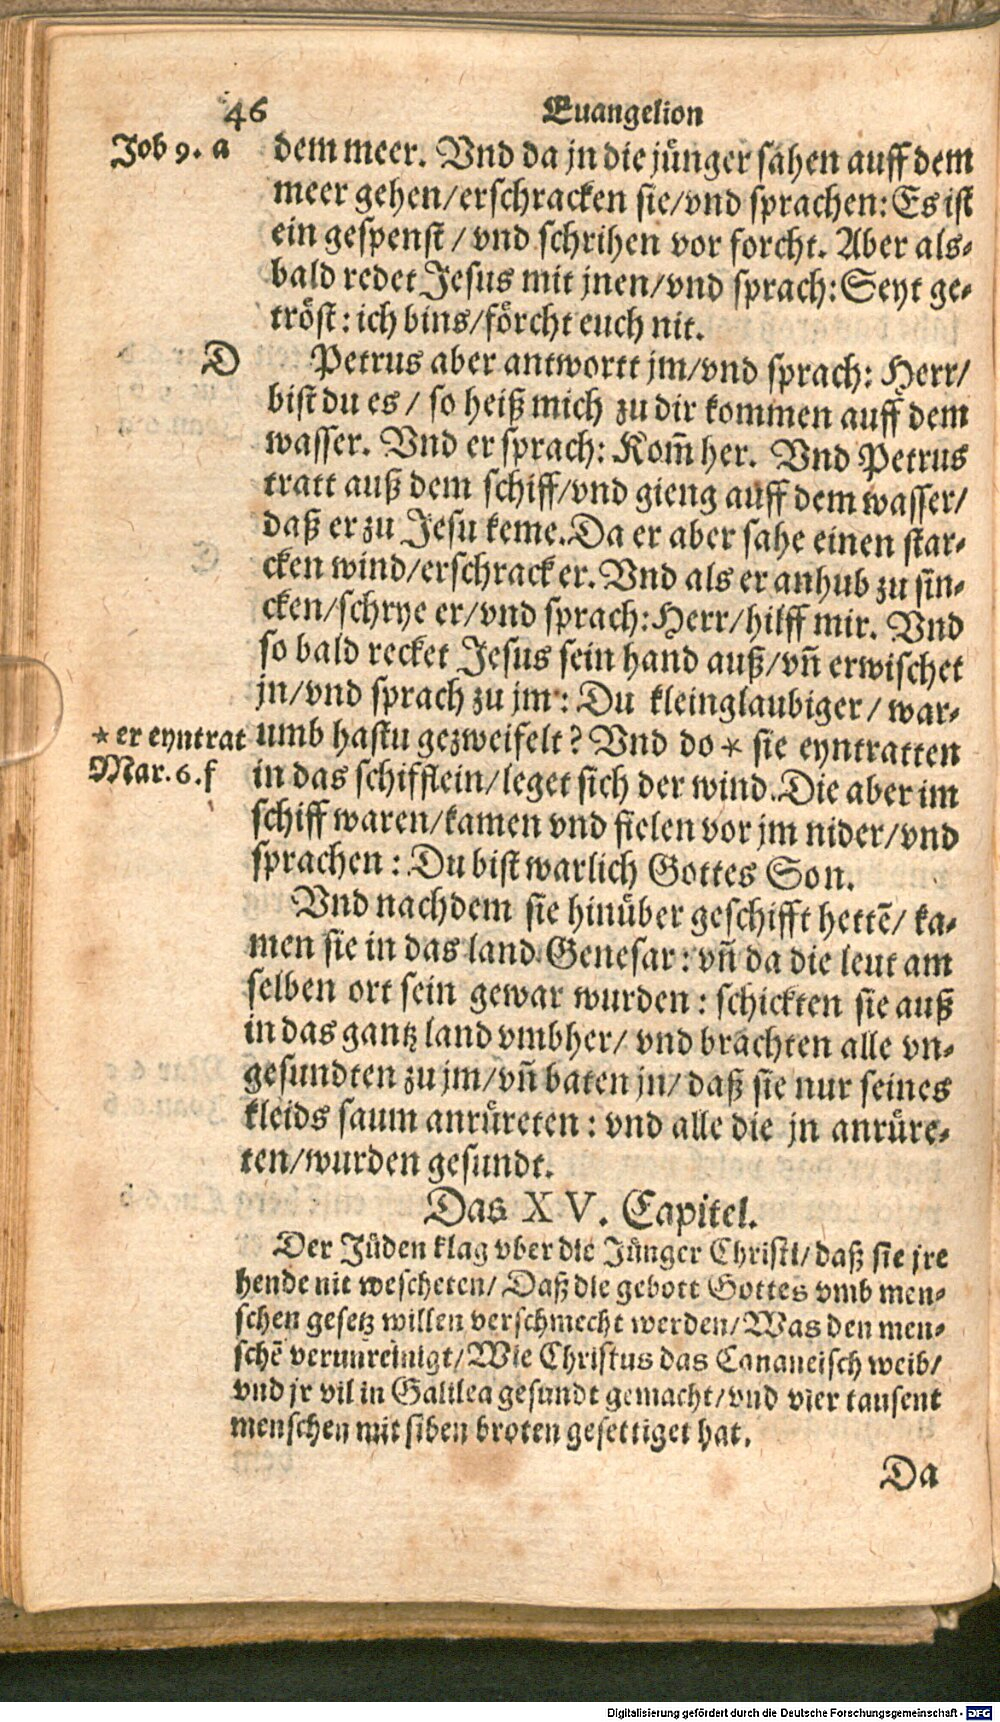 46
Euangelion
Job 9. a
dem meer. Vnd da jn die jünger sahen auff dem
meer gehen/erschracken sie/vnd sprachen: Es ist
ein gespenst / vnd schrihen vor forcht. Aber als-
bald redet Jesus mit jnen/vnd sprach: Seyt ge-
tröst: ich bins/förcht euch nit.
D
Petrus aber antwortt jm/vnd sprach: Herr/
bist du es / so heiß mich zu dir kommen auff dem
wasser. Vnd er sprach: Kom̃ her. Vnd Petrus
tratt auß dem schiff/vnd gieng auff dem wasser/
daß er zu Jesu keme. Da er aber sahe einen star-
cken wind/erschrack er. Vnd als er anhub zu sin-
cken/schrye er/vnd sprach: Herr/hilff mir. Vnd
so bald recket Jesus sein hand auß/vñ erwischet
jn/vnd sprach zu jm: Du kleinglaubiger / war-
* er eyntrat
umb hastu gezweifelt? Vnd do * sie eyntratten
Mar. 6. f
in das schifflein/leget sich der wind. Die aber im
schiff waren/kamen vnd fielen vor jm nider/vnd
sprachen: Du bist warlich Gottes Son.
Vnd nachdem sie hinüber geschifft hettẽ/ ka-
men sie in das land Genesar: vñ da die leut am
selben ort sein gewar wurden: schickten sie auß
in das gantz land vmbher/ vnd brachten alle vn-
gesundten zu jm/vñ baten jn/ daß sie nur seines
kleids saum anrüreten: vnd alle die jn anrüre-
ten/wurden gesundt.
Das XV. Capitel.
Der Jüden klag vber die Jünger Christi/daß sie jre
hende nit wescheten/ Daß die gebott Gottes vmb men-
schen gesetz willen verschmecht werden/Was den men-
schẽ verunreinigt/Wie Christus das Cananeisch weib/
vnd jr vil in Galilea gesundt gemacht/vnd vier tausent
menschen mit siben broten gesettiget hat.
Da
Digitalisierung gefördert durch die Deutsche Forschungsgemeinschaft - DFG